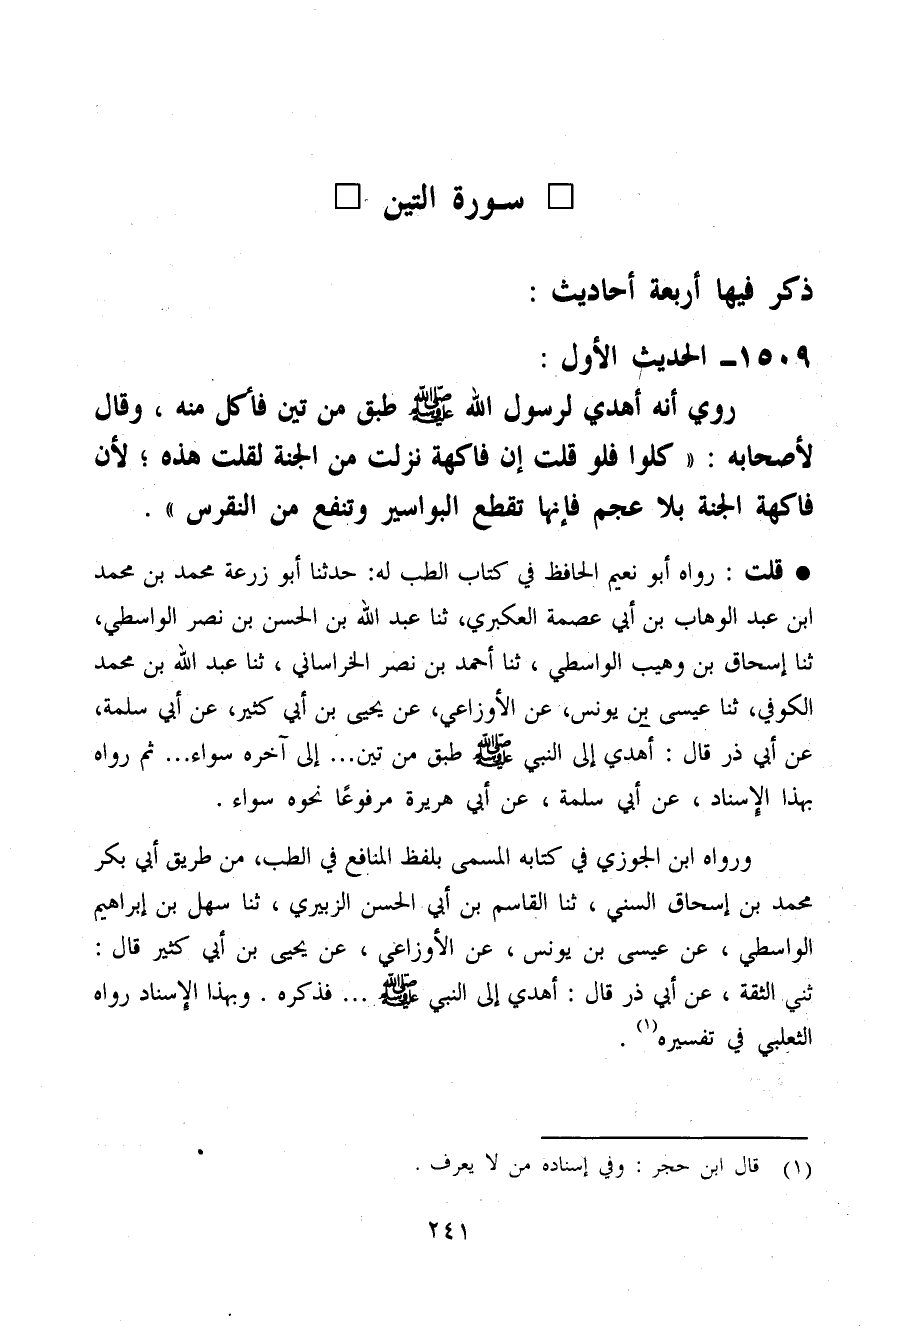 □ سورة التين □
ذكر فيها أربعة أحاديث :
١٥٠٩ـ الحديث الأول :
روي أنه أهدي لرسول الله ﷺ طبق من تين فأكل منه ، وقال
لأصحابه : « كلوا فلو قلت إن فاكهة نزلت من الجنة لقلت هذه ؛ لأن
فاكهة الجنة بلا عجم فإنها تقطع البواسير وتنفع من النقرس » .
● قلت : رواه أبو نعيم الحافظ في كتاب الطب له: حدثنا أبو زرعة محمد بن محمد
ابن عبد الوهاب بن أبي عصمة العكبري، ثنا عبد الله بن الحسن بن نصر الواسطي،
ثنا إسحاق بن وهيب الواسطي ، ثنا أحمد بن نصر الخراساني ، ثنا عبد الله بن محمد
الكوفي، ثنا عيسى بن يونس، عن الأوزاعي، عن يحيى بن أبي كثير، عن أبي سلمة،
عن أبي ذر قال : أهدي إلى النبي ﷺ طبق من تين... إلى آخره سواء... ثم رواه
بهذا الإسناد ، عن أبي سلمة ، عن أبي هريرة مرفوعًا نحوه سواء .
ورواه ابن الجوزي في كتابه المسمى بلفظ المنافع في الطب، من طريق أبي بكر
محمد بن إسحاق السني ، ثنا القاسم بن أبي الحسن الزبيري ، ثنا سهل بن إبراهيم
الواسطي ، عن عيسى بن يونس ، عن الأوزاعي ، عن يحيى بن أبي كثير قال :
ثني الثقة ، عن أبي ذر قال : أهدي إلى النبي ﷺ ... فذكره . وبهذا الإسناد رواه
الثعلبي في تفسيره(١) .
(١) قال ابن حجر : وفي إسناده من لا يعرف .
٢٤١